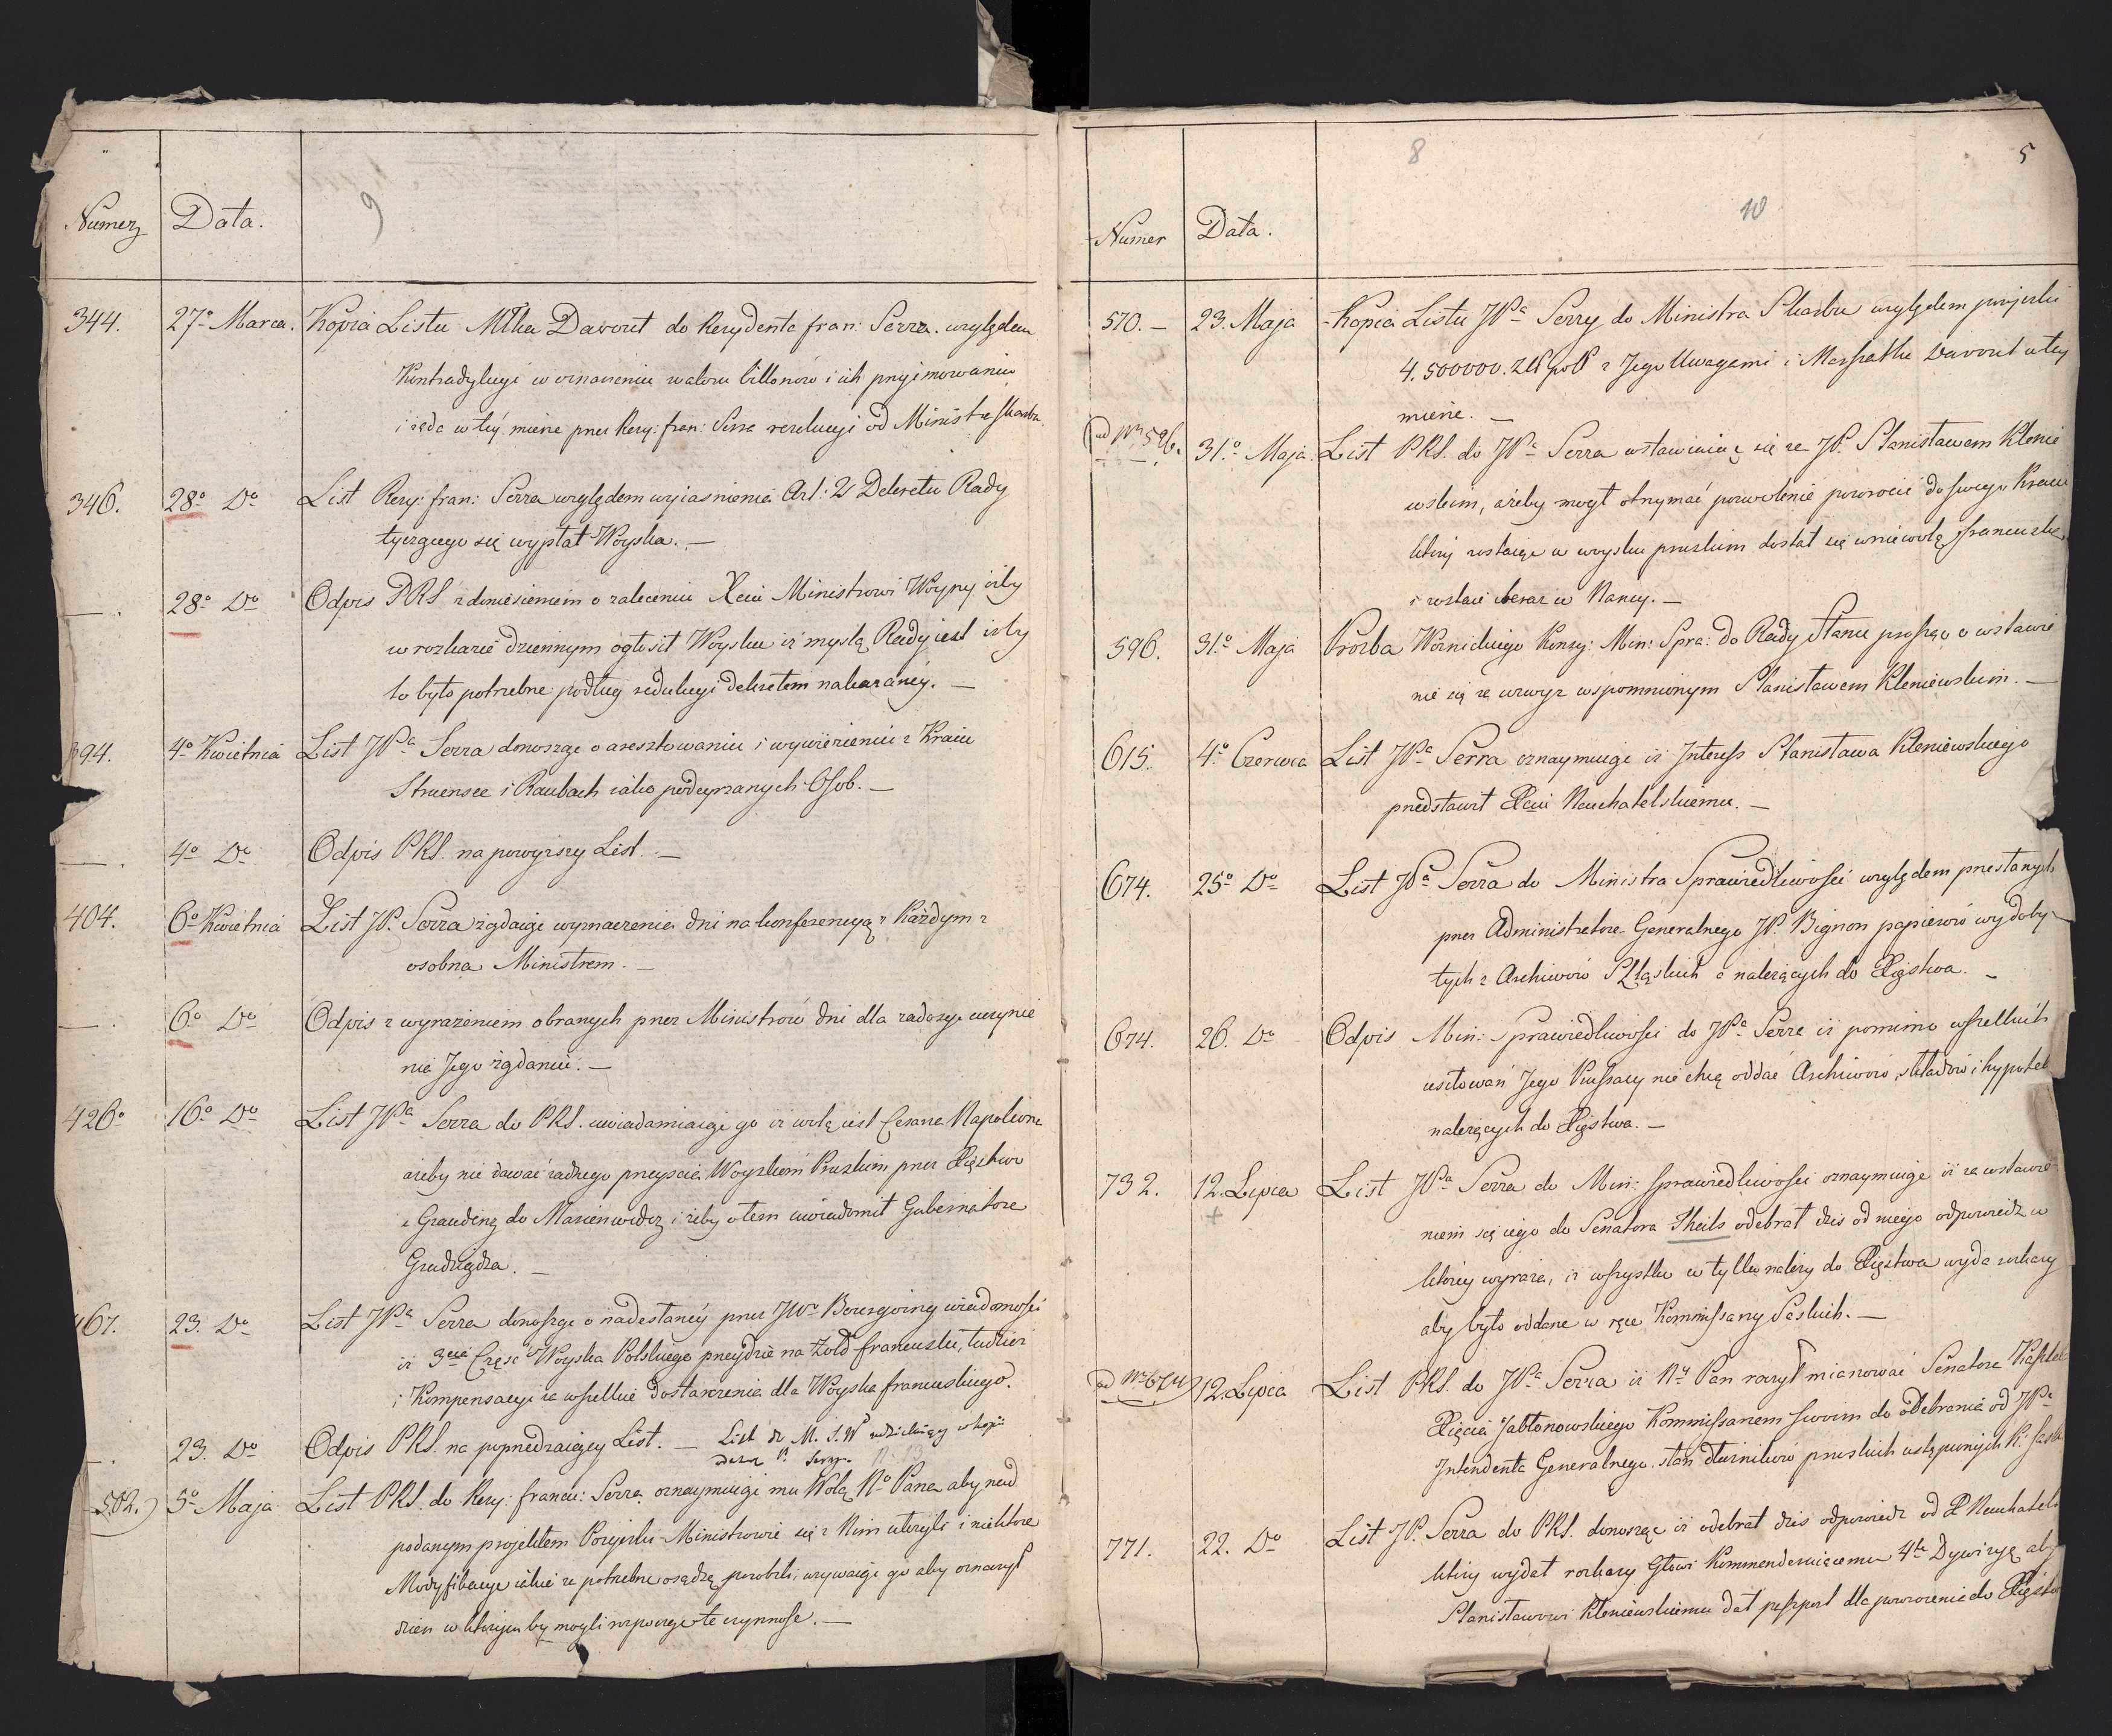 Numer Data. 9
344. 27º Marca. Kopia Listu Młka Davout do Rezydenta fran: Serra. względem
Kontradykcyi w oznaczeniu waloru billonów i ich przyimowaniu
i żąda w tey mierze przez Rezy: fran: Serra rezolucyi od Ministra Skarbu.
346. 28º Dº List Rezy: fran: Serra względem wyiasnienia Art: 2 Dekretu Rady
tyczącego się wypłat Woyska. —
— . 28º Dº Odpis PRS z doniesieniem o zaleceniu Xciu Ministrowi Woyny iżby
w rozkazie dziennym ogłosił Woysku iż myslą Rady iest iżby
to było potrzebne podług redukcyi dekretem nakazaney. —
394. 4º Kwietnia List JPª Serra donosząc o aresztowaniu i wywiezieniu z Kraiu
Struensee i Raubach iako podeyrzanych Osob. —
— . 4º Dº Odpis PRS. na powyższy List. —
404. 6º Kwietnia List JP. Serra żądaiąc wyznaczenia dni na konferencyą z Każdym z
osobna Ministrem. —
— . 6º Dº Odpis z wyrażeniem obranych przez Ministrów dni dla zadosyć uczynie
nia Jego żądaniu. —
426º 16º Dº List JPª Serra do PRS. uwiadamiaiąc go iż wolą iest Cesarza Napoleona
ażeby nie dawać żadnego przeyscia Woyskom Pruskim przez Xięstwo
z Graudenz do Marienwerder i żeby o tem uwiadomił Gubernatora
Grudziądza. —
467. 23. Dº List JPª Serra donosząc o nadesłaney przez JWº Bourgoing wiadomości
iż 3cia Część Woyska Polskiego przeydzie na żołd francuski, tudzież
i Kompensacyi za wszelkie dostarczenia dla Woyska francuskiego.
— . 23. Dº Odpis PRS. na poprzedzaiący List. — List do M. S. W udzielaiący w kopii
P. Serra.
502.) 5º Maja List PRS. do Rezy: francu: Serra oznaymuiąc mu Wolą Nº Pana aby nad
podanym projektem Pożyczki Ministrowie się z Nim ułożyli i niektóre
Modyfikacye iakie za potrzebne osądzą porobili; wzywaiąc go aby oznaczył
dzien w którym by mogli rozpocząć te czynnosc. —
8 10 5
Numer Data.
570. — 23. Maja Kopia Listu JPª Serry do Ministra Skarbu względem pożyczki
4.500000. Zł pol z Jego Uwagami i Marszałka Davout w tey
mierze. —
(ad Nr 596. 31.º Maja. List PRS. do JPª Serra wstawiaiąc się za JP. Stanisławem Klenie
wskim, ażeby mogł otrzymać pozwolenie powrocić do swego Kraiu
który zostaiąc w woysku pruskim dostał się w niewolą francuską
i zostaie teraz w Nancy. —
596. 31º Maja Prozba Woznickiego Konsy: Min: Spra: do Rady Stanu prosząc o wstawie
nie się za wzwyż wspomnionym Stanisławem Kleniewskim. —
615. 4º Czerwca List JPª Serra oznaymuiąc iż Interess Stanisława Kleniewskiego
przedstawił Xciu Neuchatelskiemu. —
674. 25º Dº List JPª Serra do Ministra Sprawiedliwości względem przesłanych
przez Administratora Generalnego JP. Bignon papierów wydoby-
tych z Archiwów Szląskich a należących do Xięstwa. —
674. 26. Dº Odpis Min: Sprawiedliwości do JPª Serra iż pomimo wszelkich
usiłowań Jego Prussacy nie chcą oddać Archiwów, składów i hypotek
należących do Xięstwa. —
732. 12. Lipca List JPª Serra do Min: Sprawiedliwości oznaymuiąc iż za wstawie
niem się iego do Senatora Theils odebrał dzis od niego odpowiedz w
którey wyraża, iż wszystko co tylko należy do Xięstwa wyda rozkazy
aby było oddane w ręce Kommissarzy Saskich. —
(ad Nr 674) 12. Lipca List PRS. do JPª Serra iż Ny Pan raczył mianować Senatora Kasztel
Xięcia Jabłonowskiego Kommissarzem swoim do odebrania od JPª
Intendenta Generalnego stan dłużników pruskich ustąpionych K: Sask.
771. 22. Dº List JP. Serra do PRS. donosząc iż odebrał dzis odpowiedz od X Neuchatels
który wydał rozkazy Głowi Kommenderuiącemu 4tą Dywizyą aby
Stanisławowi Kleniewskiemu dał paszport dla powrocenia do Xięstwa